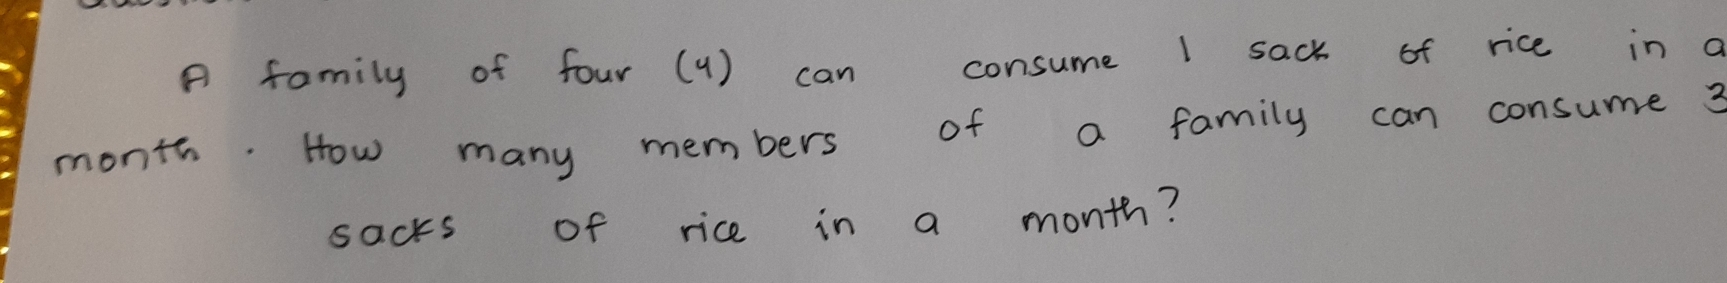 A family of four (4) can consume 1 sack of rice in a
month. How many members of a family can consume 3
sacks of rice in a month?